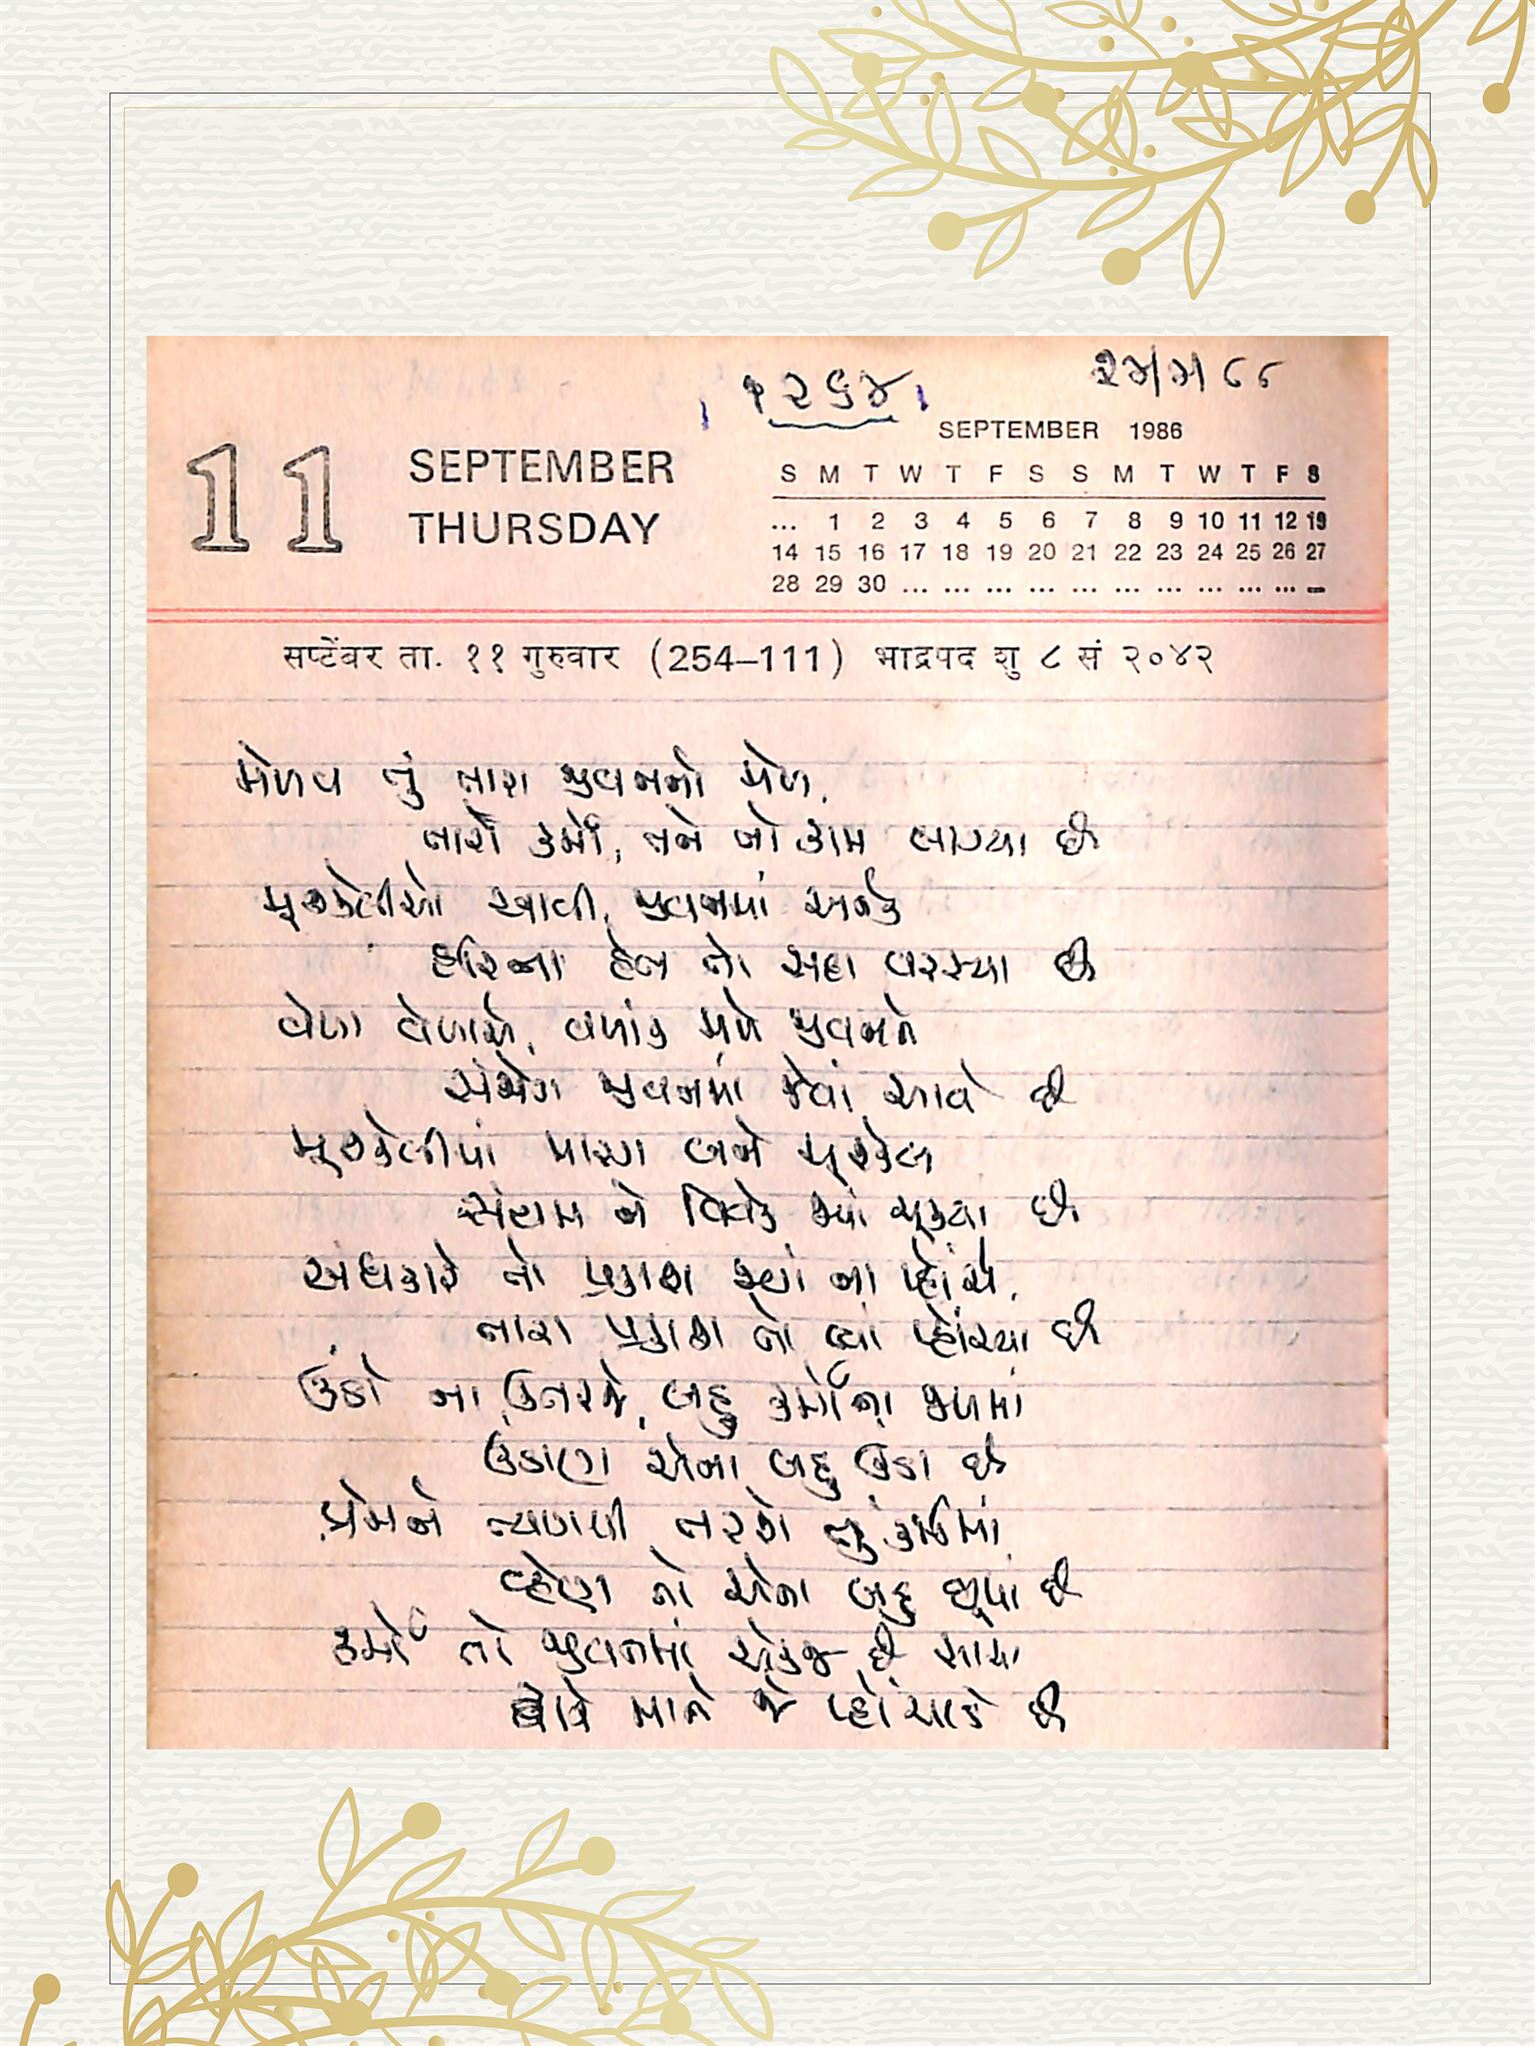 ૧૨૬૪
૨૪/૪/૮૮
11
SEPTEMBER
THURSDAY
SEPTEMBER 1986
S M T W T F S S M T W T F S
... 1 2 3 4 5 6 7 8 9 10 11 12 13
14 15 16 17 18 19 20 21 22 23 24 25 26 27
28 29 30 ... ... ... ... ... ... ... ... ... ... ...
सप्टेंबर ता. ११ गुरुवार (254–111) भाद्रपद शु ८ सं २०४२
મેળવ તું તારા જીવનનો મેળ,
તારાં કર્મો, તને જો કામ લાગ્યા છે
મૂશ્કેલીઓ આવી, જીવનમાં અનેક
હરિના હેત તો સદા વરસ્યા છે
વેળા વેળાએ, વળાંક મળે જીવનને
સંજોગ જીવનમાં જેવાં આવે છે
મૂશ્કેલીમાં મારગ બને મૂશ્કેલ
સંયમ ને વિવેક જ્યાં ચૂક્યા છે
અંધકારે તો પ્રકાશ જ્યાં ના પ્હોંચે,
તારા પ્રકાશ તો ત્યાં પ્હોંચ્યા છે
ઉંડો ના ઉતરજે, બહુ કર્મોના જળમાં
ઉંડાણ એના બહુ ઉંડા છે
પ્રેમને ત્યાગથી તરશે તું કર્મમાં
વ્હેણ તો એના બહુ છૂપા છે
કર્મો તો જીવનમાં એકજ છે સાચા
માને જે પ્હોંચાડે છે